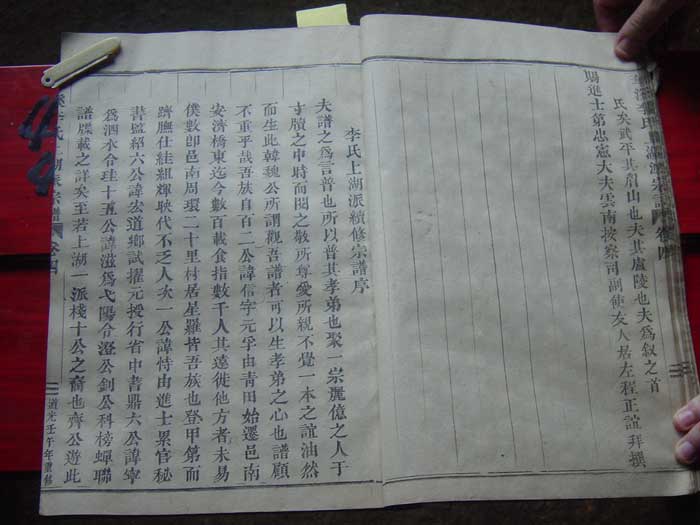 氏矣武平其眉山也夫其盧陵也夫為叙之首
賜進士第忠憲大夫雲南按察司副使友人居左程正誼拜撰
李氏上湖派續修宗譜序
夫譜之為言普也所以普其孝弟也聚一崇麗億之人于
寸牘之中時而閱之敬所尊愛所親不覺一本之誼油然
而生此韓魏公所謂觀吾譜者可以生孝弟之心也譜顧
不重乎哉吾族自百二公諱信字元孚由青田始遷邑南
安濟橋東迄今數百載食指數千人其遠徙他方者未易
僕數即邑南周環二十里村居星羅皆吾族也登甲第而
躋膴仕絓組輝映代不乏人次一公諱恃由進士累官秘
書監紹六公諱宏道鄉試擢元授行省中書鼎六公諱寧
為泗水令珪十五公諱滋為弋陽令澄公釗公科榜蟬聯
譜牒載之詳矣至若上湖一派棧十公之裔也齊公遊此
上湖派宗譜 卷四
道光壬午年重修